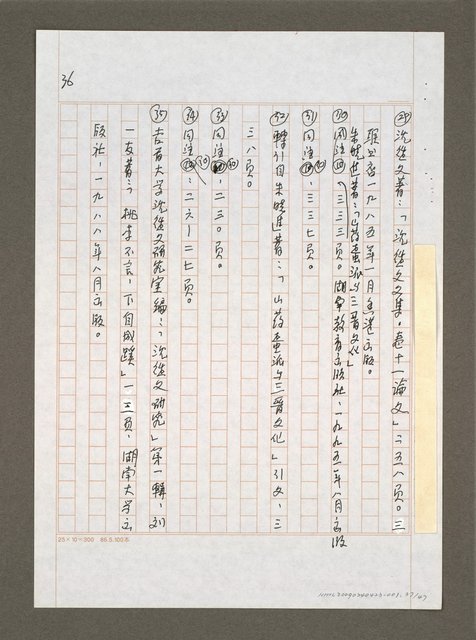 36
㉙沈從文著：「沈從文文集。卷十一論文」二五八頁。三
聯書店一九八五年一月香港出版。
朱曉進著：「山药蛋派与三晋文化」
㉚三三三頁。湖南教育出版社，一九九五年八月出版
㉛同注㉚，三三七頁。
㉜轉引自朱曉進著：「山药蛋派与三晋文化」引文，三
三八頁。
㉝同注㉚，二三〇頁。
㉞同注㉚，二六－二七頁。
㉟吉首大学沈從文研究室編：「沈從文研究」第一輯，刘
一友著：「桃李不言，下自成蹊」一三頁，湖南大学出
版社，一九八八年八月出版。
25×10=300 85.5.100本